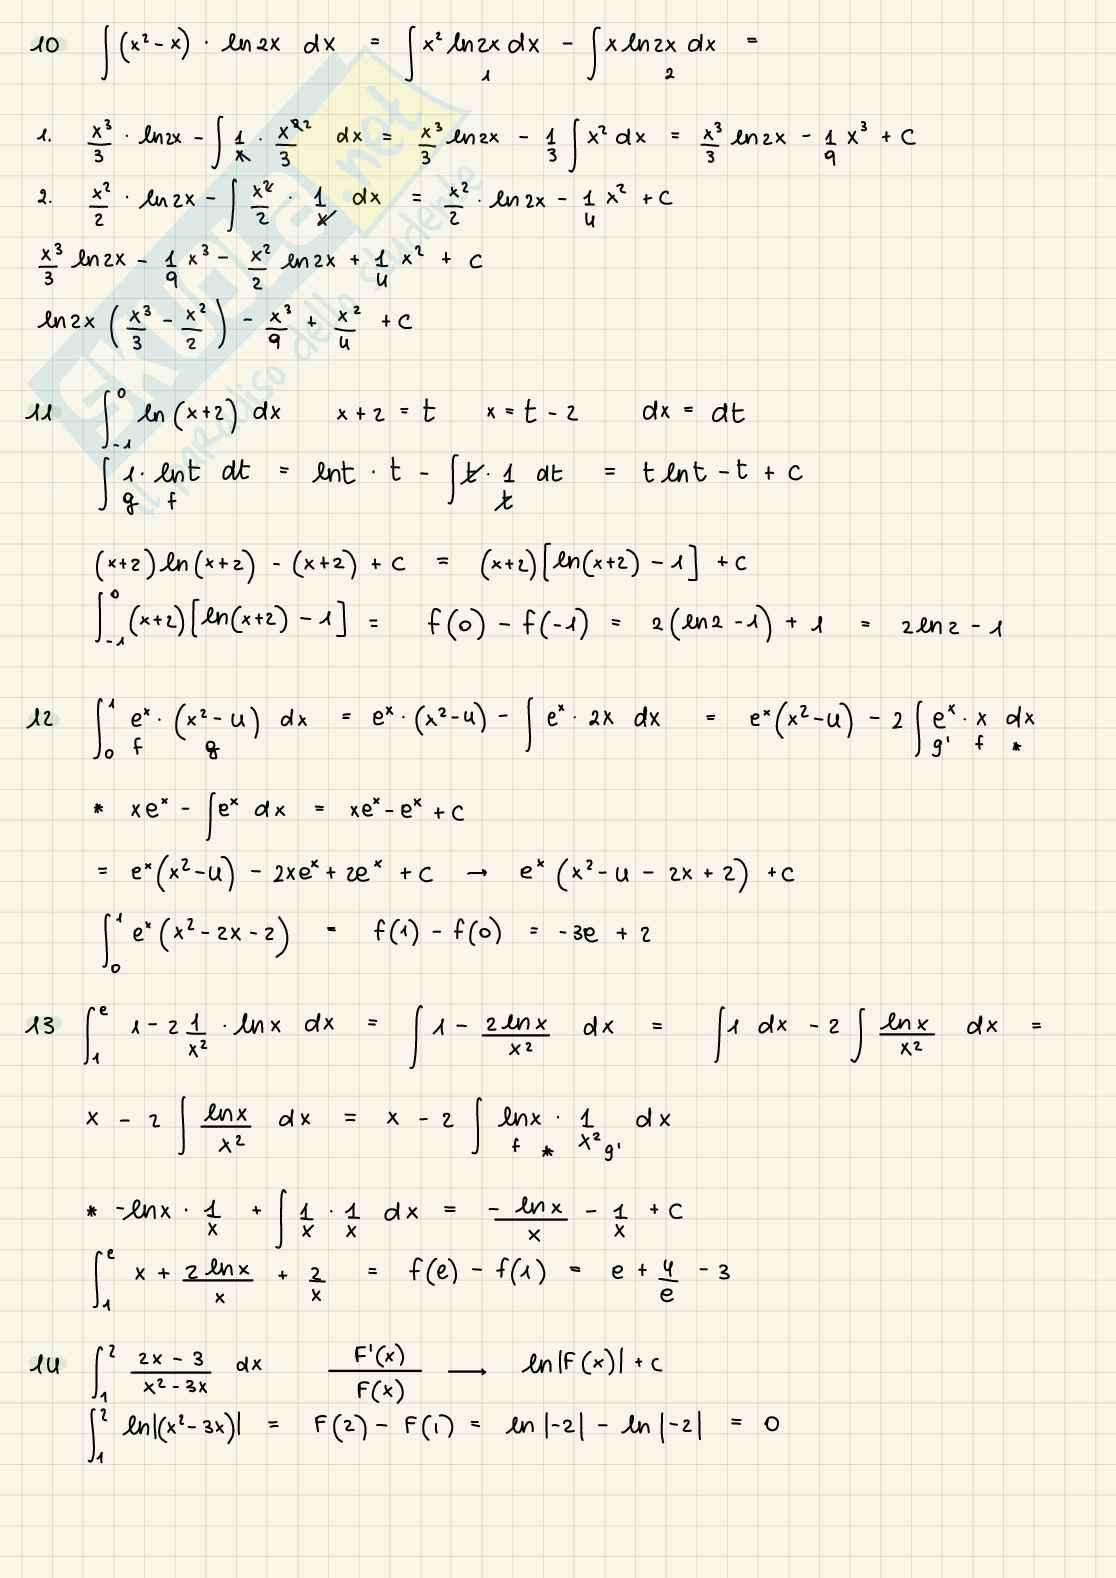 10 ∫(x² - x) · ln2x dx = ∫x² ln2x dx - ∫x ln2x dx =
1 2
1. x³/3 · ln2x - ∫ 1/x · x³²/3 dx = x³/3 ln2x - 1/3 ∫ x² dx = x³/3 ln2x - 1/9 x³ + c
2. x²/2 · ln2x - ∫ x²/2 · 1/x dx = x²/2 · ln2x - 1/4 x² + c
x³/3 ln2x - 1/9 x³ - x²/2 ln2x + 1/4 x² + c
ln2x (x³/3 - x²/2) - x³/9 + x²/4 + c
SKUOLA.net
il paradiso dello studente
11 ∫₋₁⁰ ln(x+2) dx x+2 = t x = t - 2 dx = dt
∫ 1 · lnt dt = lnt · t - ∫ t · 1/t dt = t lnt - t + c
g f
(x+2)ln(x+2) - (x+2) + c = (x+2)[ln(x+2) - 1] + c
∫₋₁⁰ (x+2)[ln(x+2) - 1] = f(0) - f(-1) = 2(ln2 - 1) + 1 = 2ln2 - 1
12 ∫₀¹ eˣ · (x² - 4) dx = eˣ · (x² - 4) - ∫ eˣ · 2x dx = eˣ(x² - 4) - 2 ∫ eˣ · x dx
f g g' f *
* xeˣ - ∫eˣ dx = xeˣ - eˣ + c
= eˣ(x² - 4) - 2xeˣ + 2eˣ + c → eˣ (x² - 4 - 2x + 2) + c
∫₀¹ eˣ (x² - 2x - 2) = f(1) - f(0) = -3e + 2
13 ∫₁ᵉ 1 - 2 1/x² · lnx dx = ∫ 1 - 2lnx/x² dx = ∫1 dx - 2 ∫ lnx/x² dx =
x - 2 ∫ lnx/x² dx = x - 2 ∫ lnx · 1/x² dx
f * g'
* -lnx · 1/x + ∫ 1/x · 1/x dx = - lnx/x - 1/x + c
∫₁ᵉ x + 2lnx/x + 2/x = f(e) - f(1) = e + 4/e - 3
14 ∫₁² 2x - 3/x² - 3x dx F'(x)/F(x) → ln|F(x)| + c
∫₁² ln|(x² - 3x)| = F(2) - F(1) = ln|-2| - ln|-2| = 0